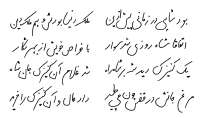 بود شاهی در زمانی پیش ازین ملک دنیا بودش و هم ملک دین
اتفاقا شاه روزی شد سوار با خواص خویش از بهر شکار
یک کنیزک دید شه بر شاهراه شد غلام آن کنیزک جان شاه
مرغ جانش در قفس چون می‌طپید داد مال و آن کنیزک را خرید